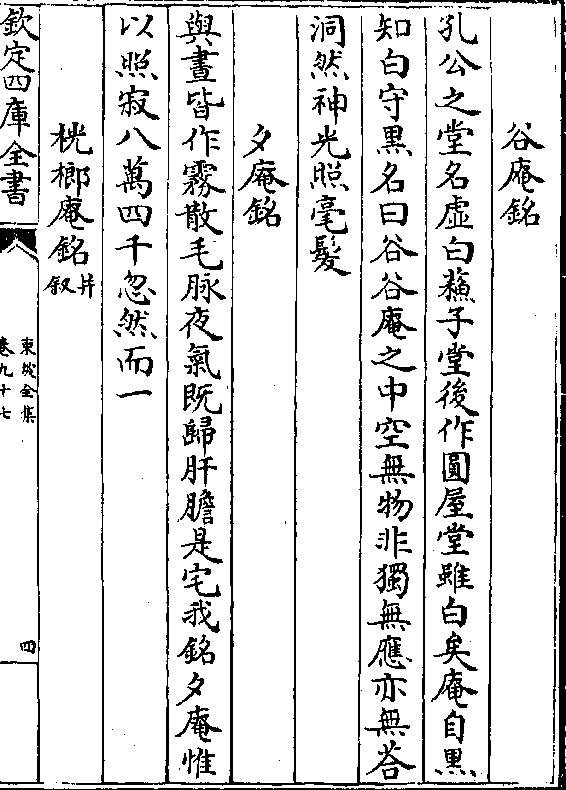 谷庵銘
孔公之堂名虛白蘓子堂後作圓屋堂雖白矣庵自黒
知白守黒名曰谷谷庵之中空無物非獨無應亦無荅
洞然神光照毫髪
夕庵銘
與晝皆作霧散毛脉夜氣既歸肝膽是宅我銘夕庵惟
以照寂八萬四千忽然而一
桄榔庵銘
并叙
欽定四庫全書
東坡全集
卷九十七
四